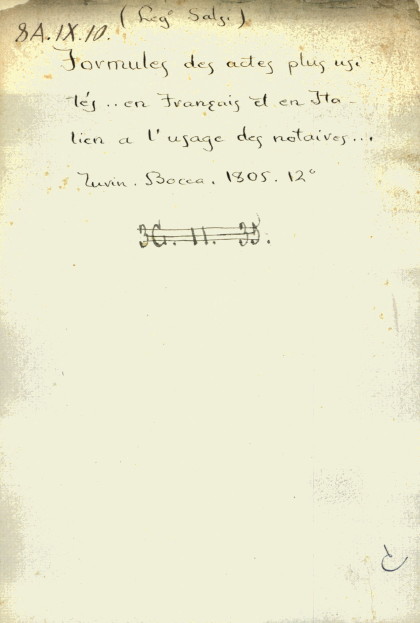 (Leg° Sals.)
8A.IX.10.
Formules des actes plus usi-
tés .. en Français et en Ita-
lien a l'usage des notaires...
Turin. Bocca. 1805. 12°
3G. II. 33.